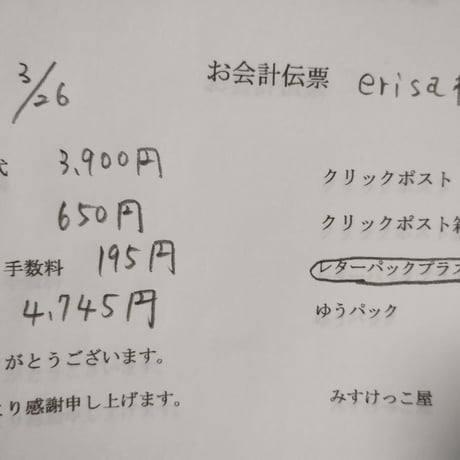 3/26 お会計伝票 erisa様
代 3,900円 クリックポスト
650円 クリックポスト箱
手数料 195円 レターパックプラス
4,745円 ゆうパック
がとうございます。
より感謝申し上げます。 みすけっこ屋